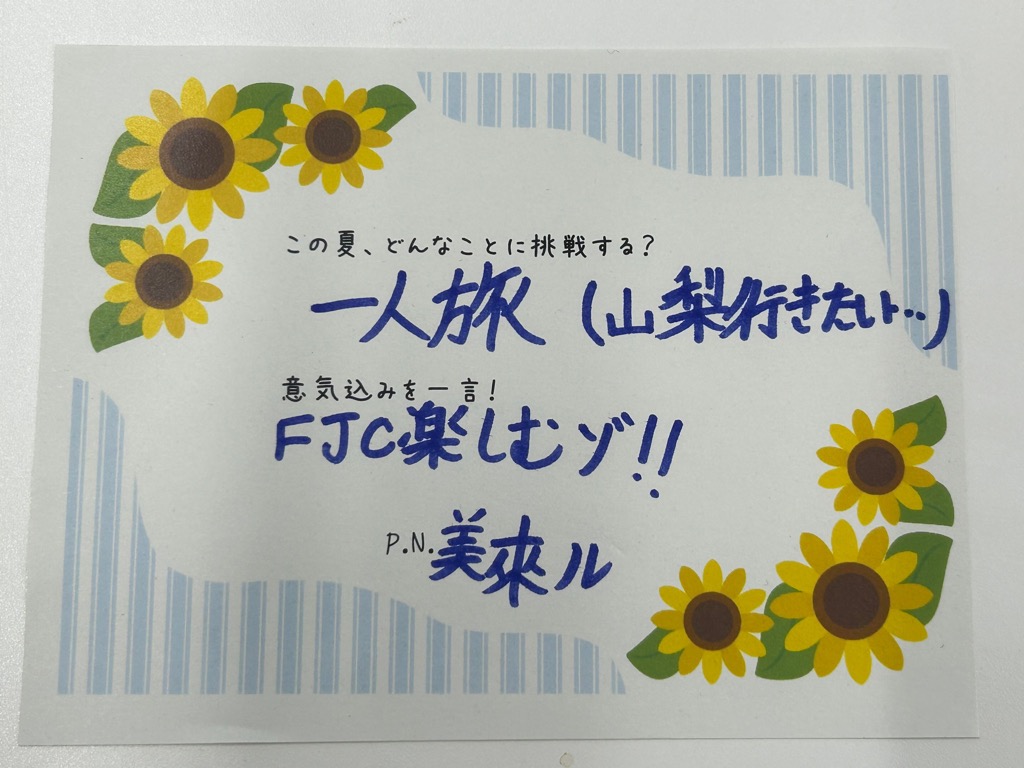 この夏、どんなことに挑戦する?
一人旅 (山梨行きたい…)
意気込みを一言!
FJC楽しむゾ!!
P.N.美來ル